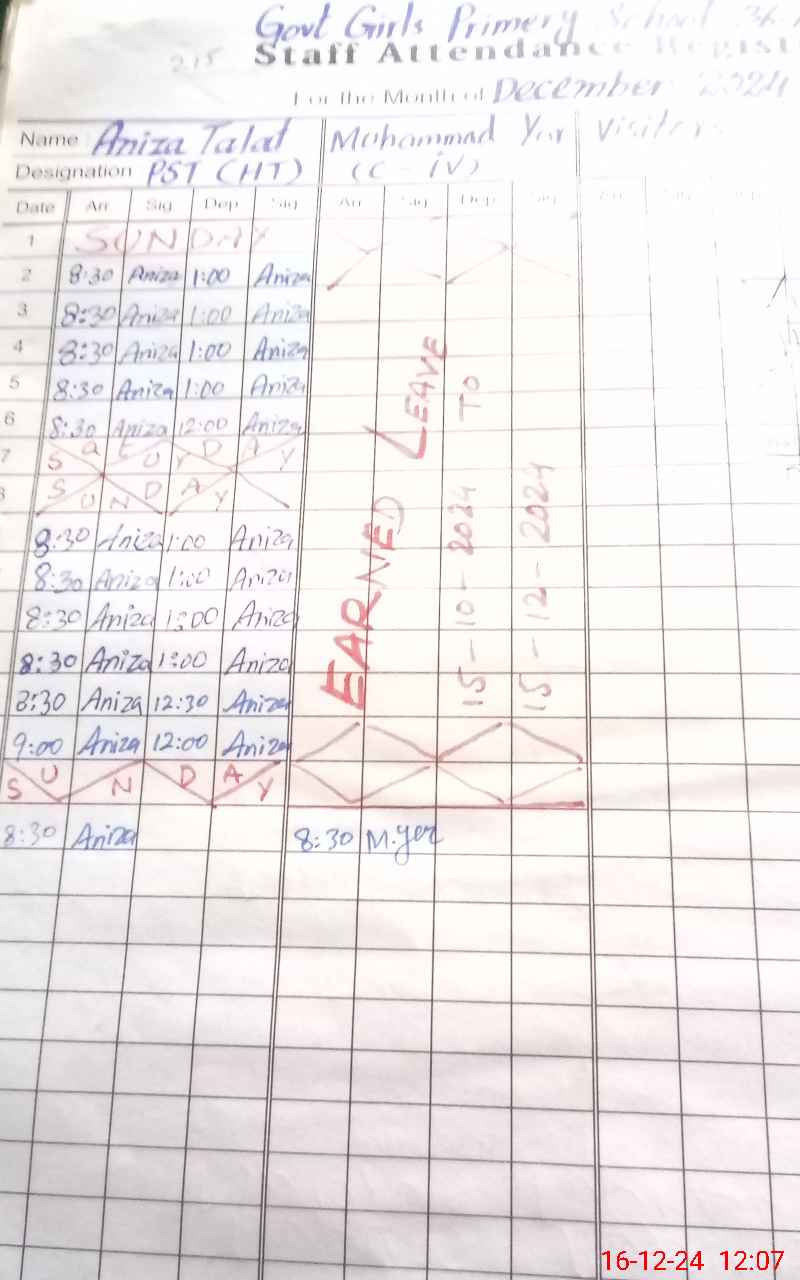 Govt Girls Primery School 36-
215 Staff Attendance Regist
For the Month of December 2024
Name Aniza Talat Mohammad Yar Visitors
Designation PST (HT) (C - iV)
Date Arr Sig Dep Sig Arr Sig Dep Sig
1 SUNDAY
2 8:30 Aniza 1:00 Aniza
3 8:30 Aniza 1:00 Aniza
4 8:30 Aniza 1:00 Aniza
5 8:30 Aniza 1:00 Aniza
6 8:30 Aniza 12:00 Aniza
7 SATURDAY
SUNDAY
8:30 Aniza 1:00 Aniza
8:30 Aniza 1:00 Aniza
8:30 Aniza 1:00 Aniza
8:30 Aniza 1:00 Aniza
8:30 Aniza 12:30 Aniza
9:00 Aniza 12:00 Aniza
SUNDAY
8:30 Aniza 8:30 M.yer
EARNED LEAVE
15-10-2024 TO
15-12-2024
16-12-24 12:07